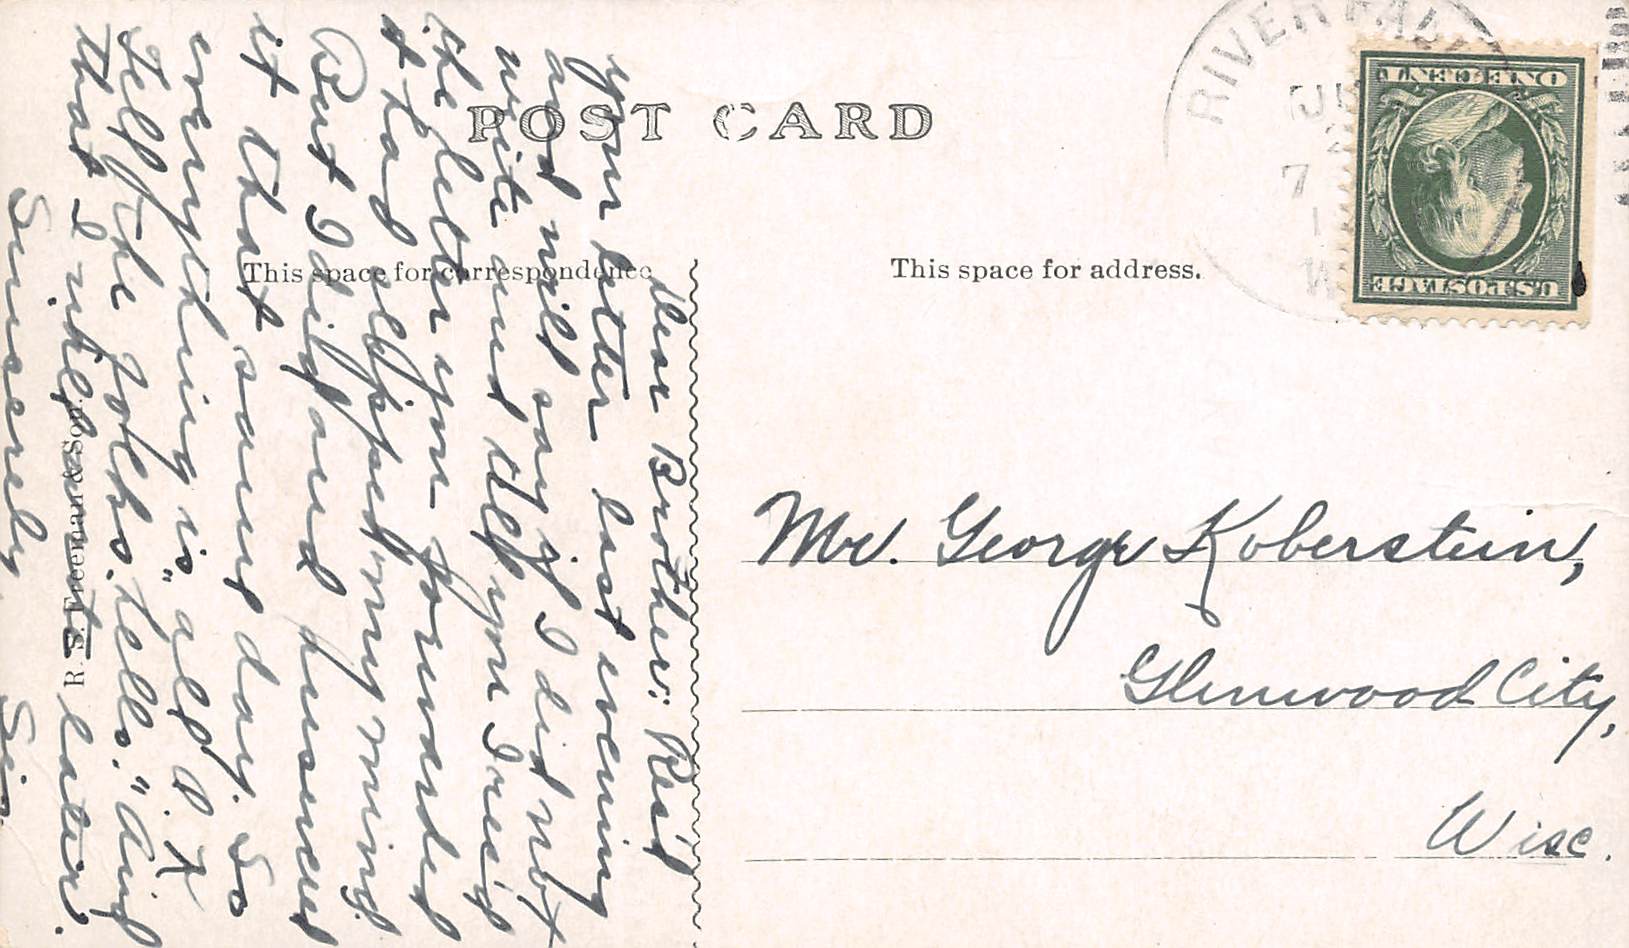 POST CARD
This space for correspondence
This space for address.
RIVER FALL
7
ONE CENT
U.S. POSTAGE
Mr. George Koberstein,
Glenwood City,
Wisc.
Dear Brother: Rec'd
your letter last evening
and will say if I did not
write and tell you I rec'd
the letter you forwarded
it had slipped my mind.
But I did and answered
it that same day. So
everything is "all O.K."
Tell the folks. "Hello." And
that I will write later.
Sincerely
Sis.
R. S. Freeman & Son.